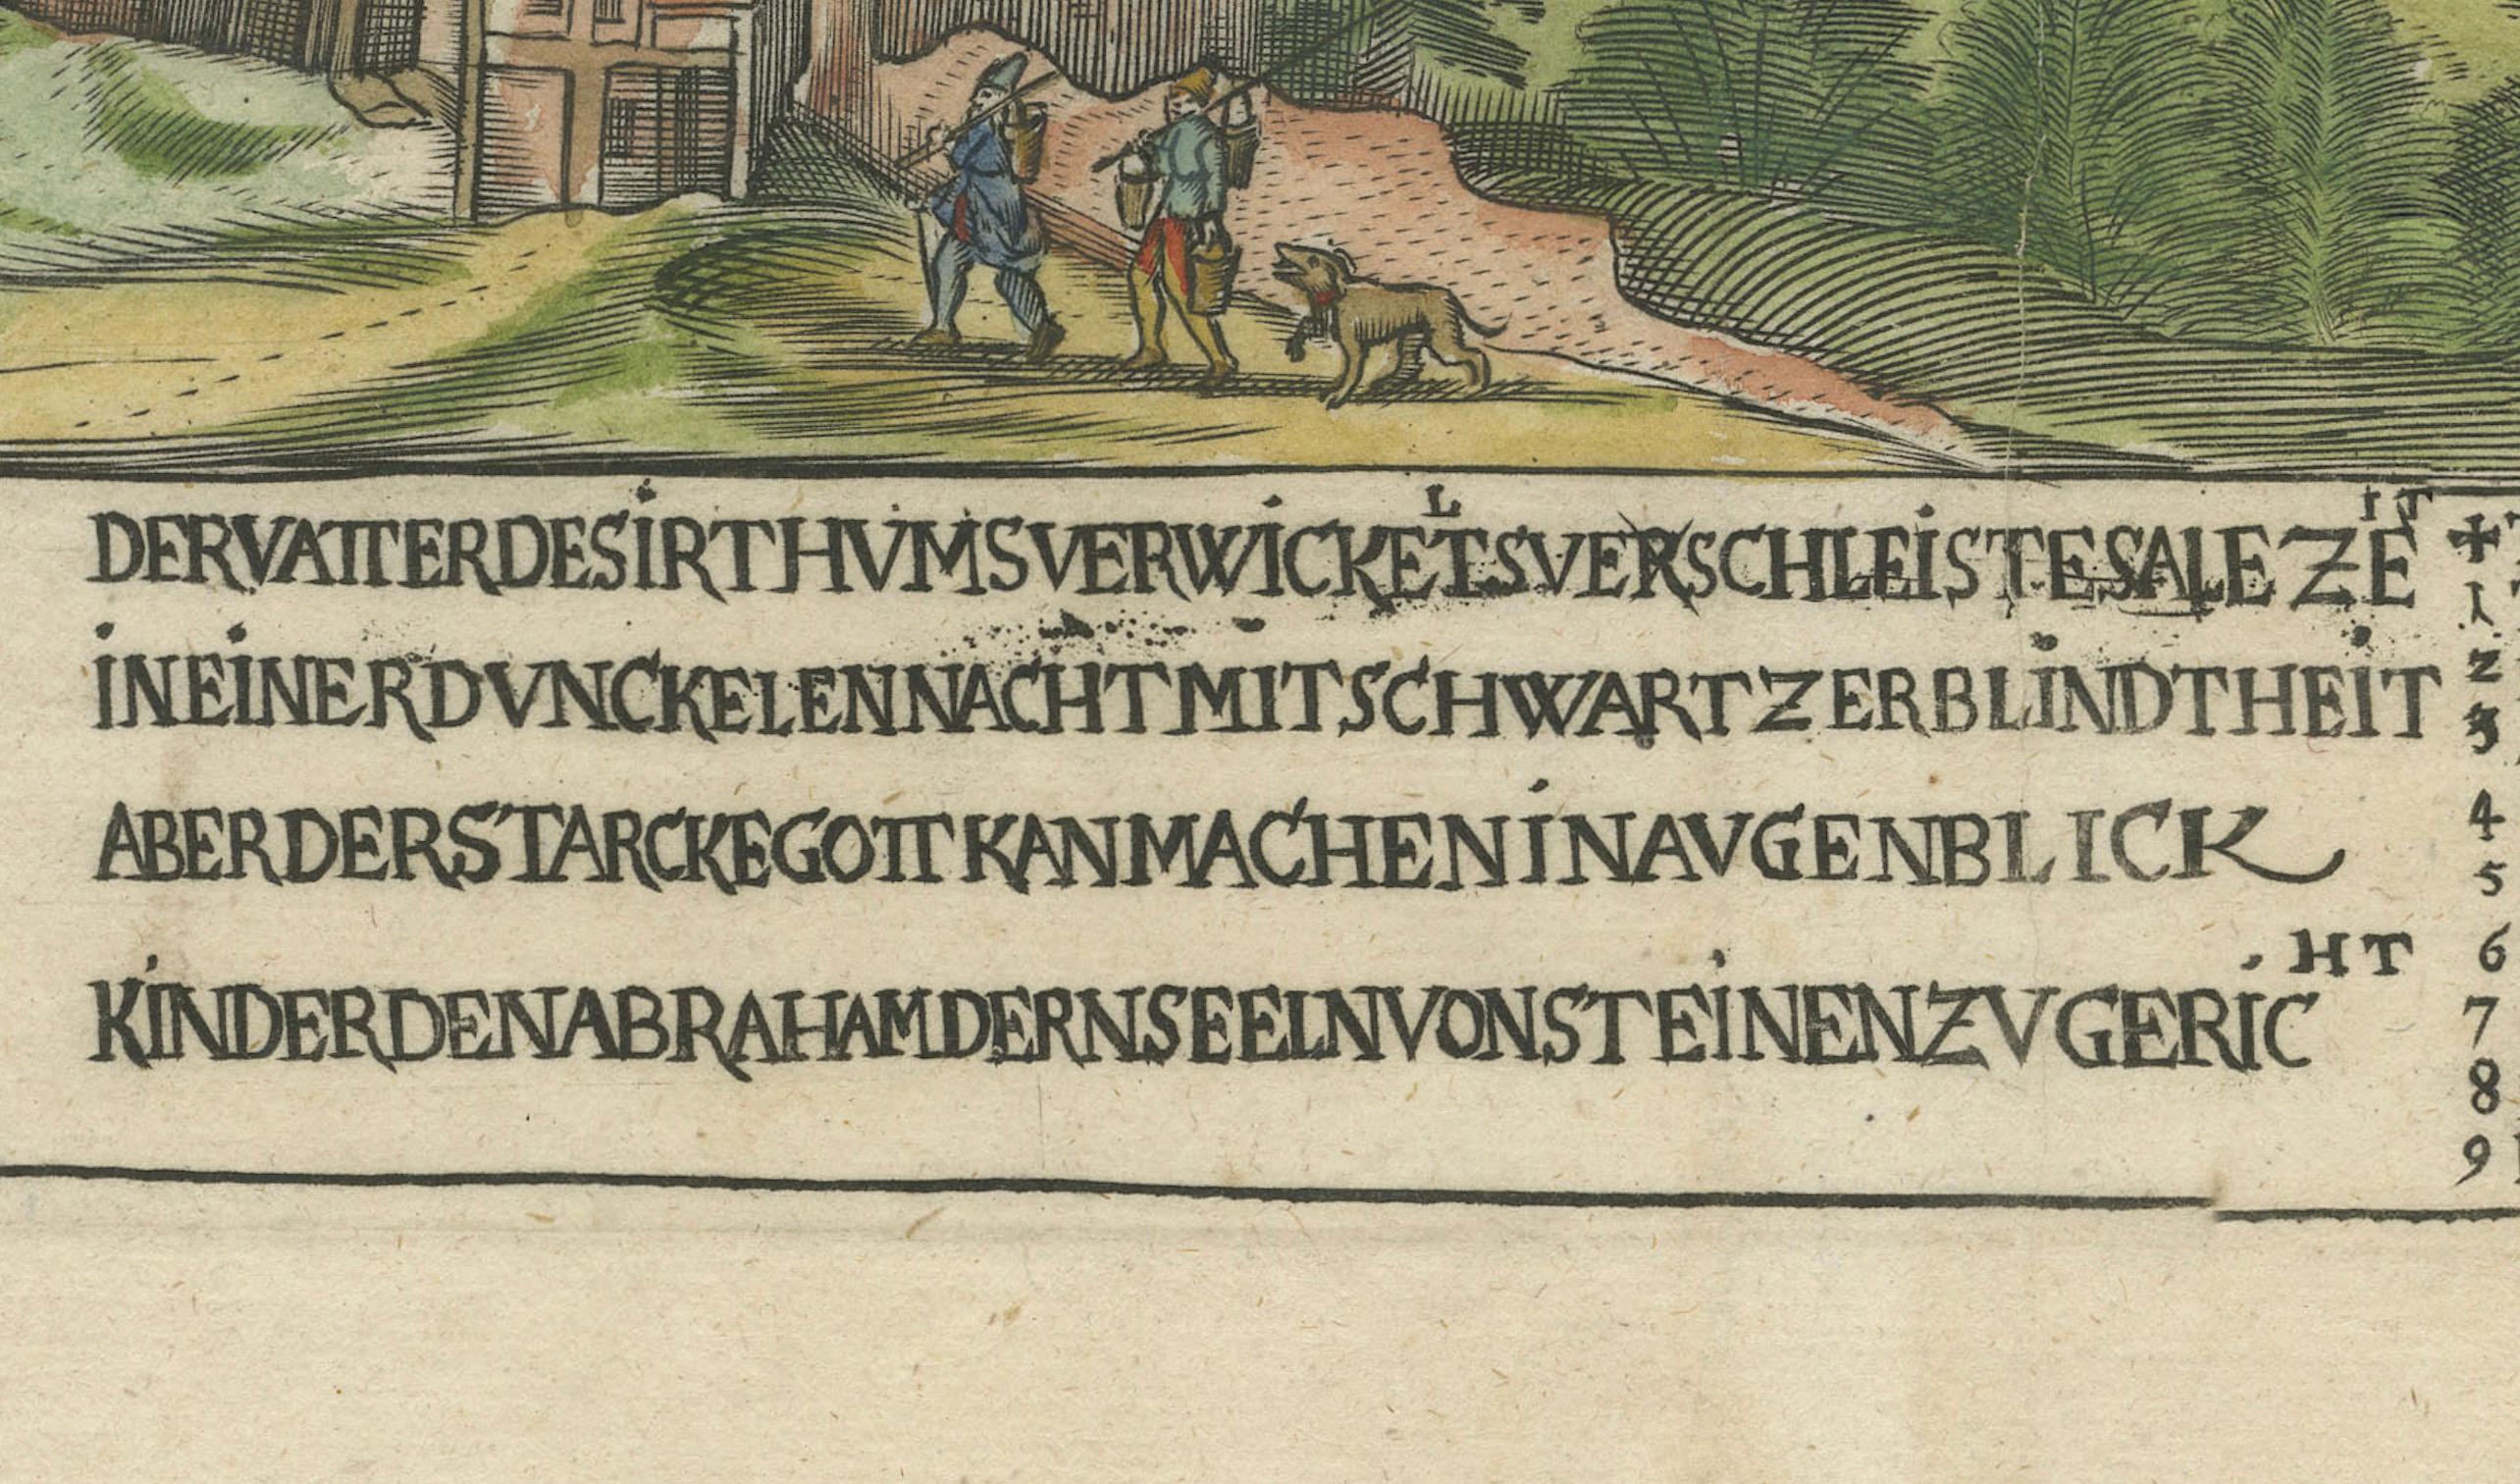 DERVATTERDESİRTHVMSVERWİCKELTSVERSCHLEİSTESALEZEIT
İNEİNERDVNCKELENNACHTMITSCHWARTZERBLİNDTHEİT
ABERDERSTARCKEGOTTKANMACHENİNAVGENBLICK
KİNDERDENABRAHAMDERNSEELNVONSTEİNENZVGERİCHT
+
1
2
3
4
5
6
7
8
9